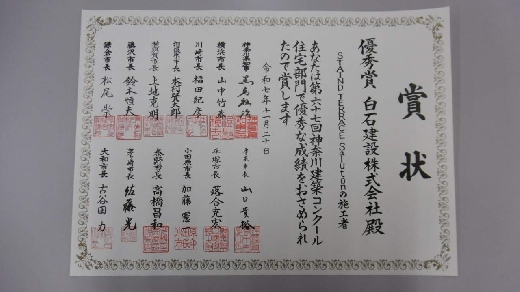 賞状
優秀賞 白石建設株式会社殿
STAND TERRACE Salutonの施工者
あなたは第六十七回神奈川建築コンクール
住宅部門で優秀な成績をおさめられ
たので賞します
令和七年十一月二十日
神奈川県知事 黒岩祐治
横浜市長 山中竹春
川崎市長 福田紀彦
相模原市長 本村賢太郎
横須賀市長 上地克明
藤沢市長 鈴木恒夫
鎌倉市長 松尾崇
厚木市長 山口貴裕
平塚市長 落合克宏
小田原市長 加藤憲一
秦野市長 高橋昌和
茅ヶ崎市長 佐藤光
大和市長 古谷田力